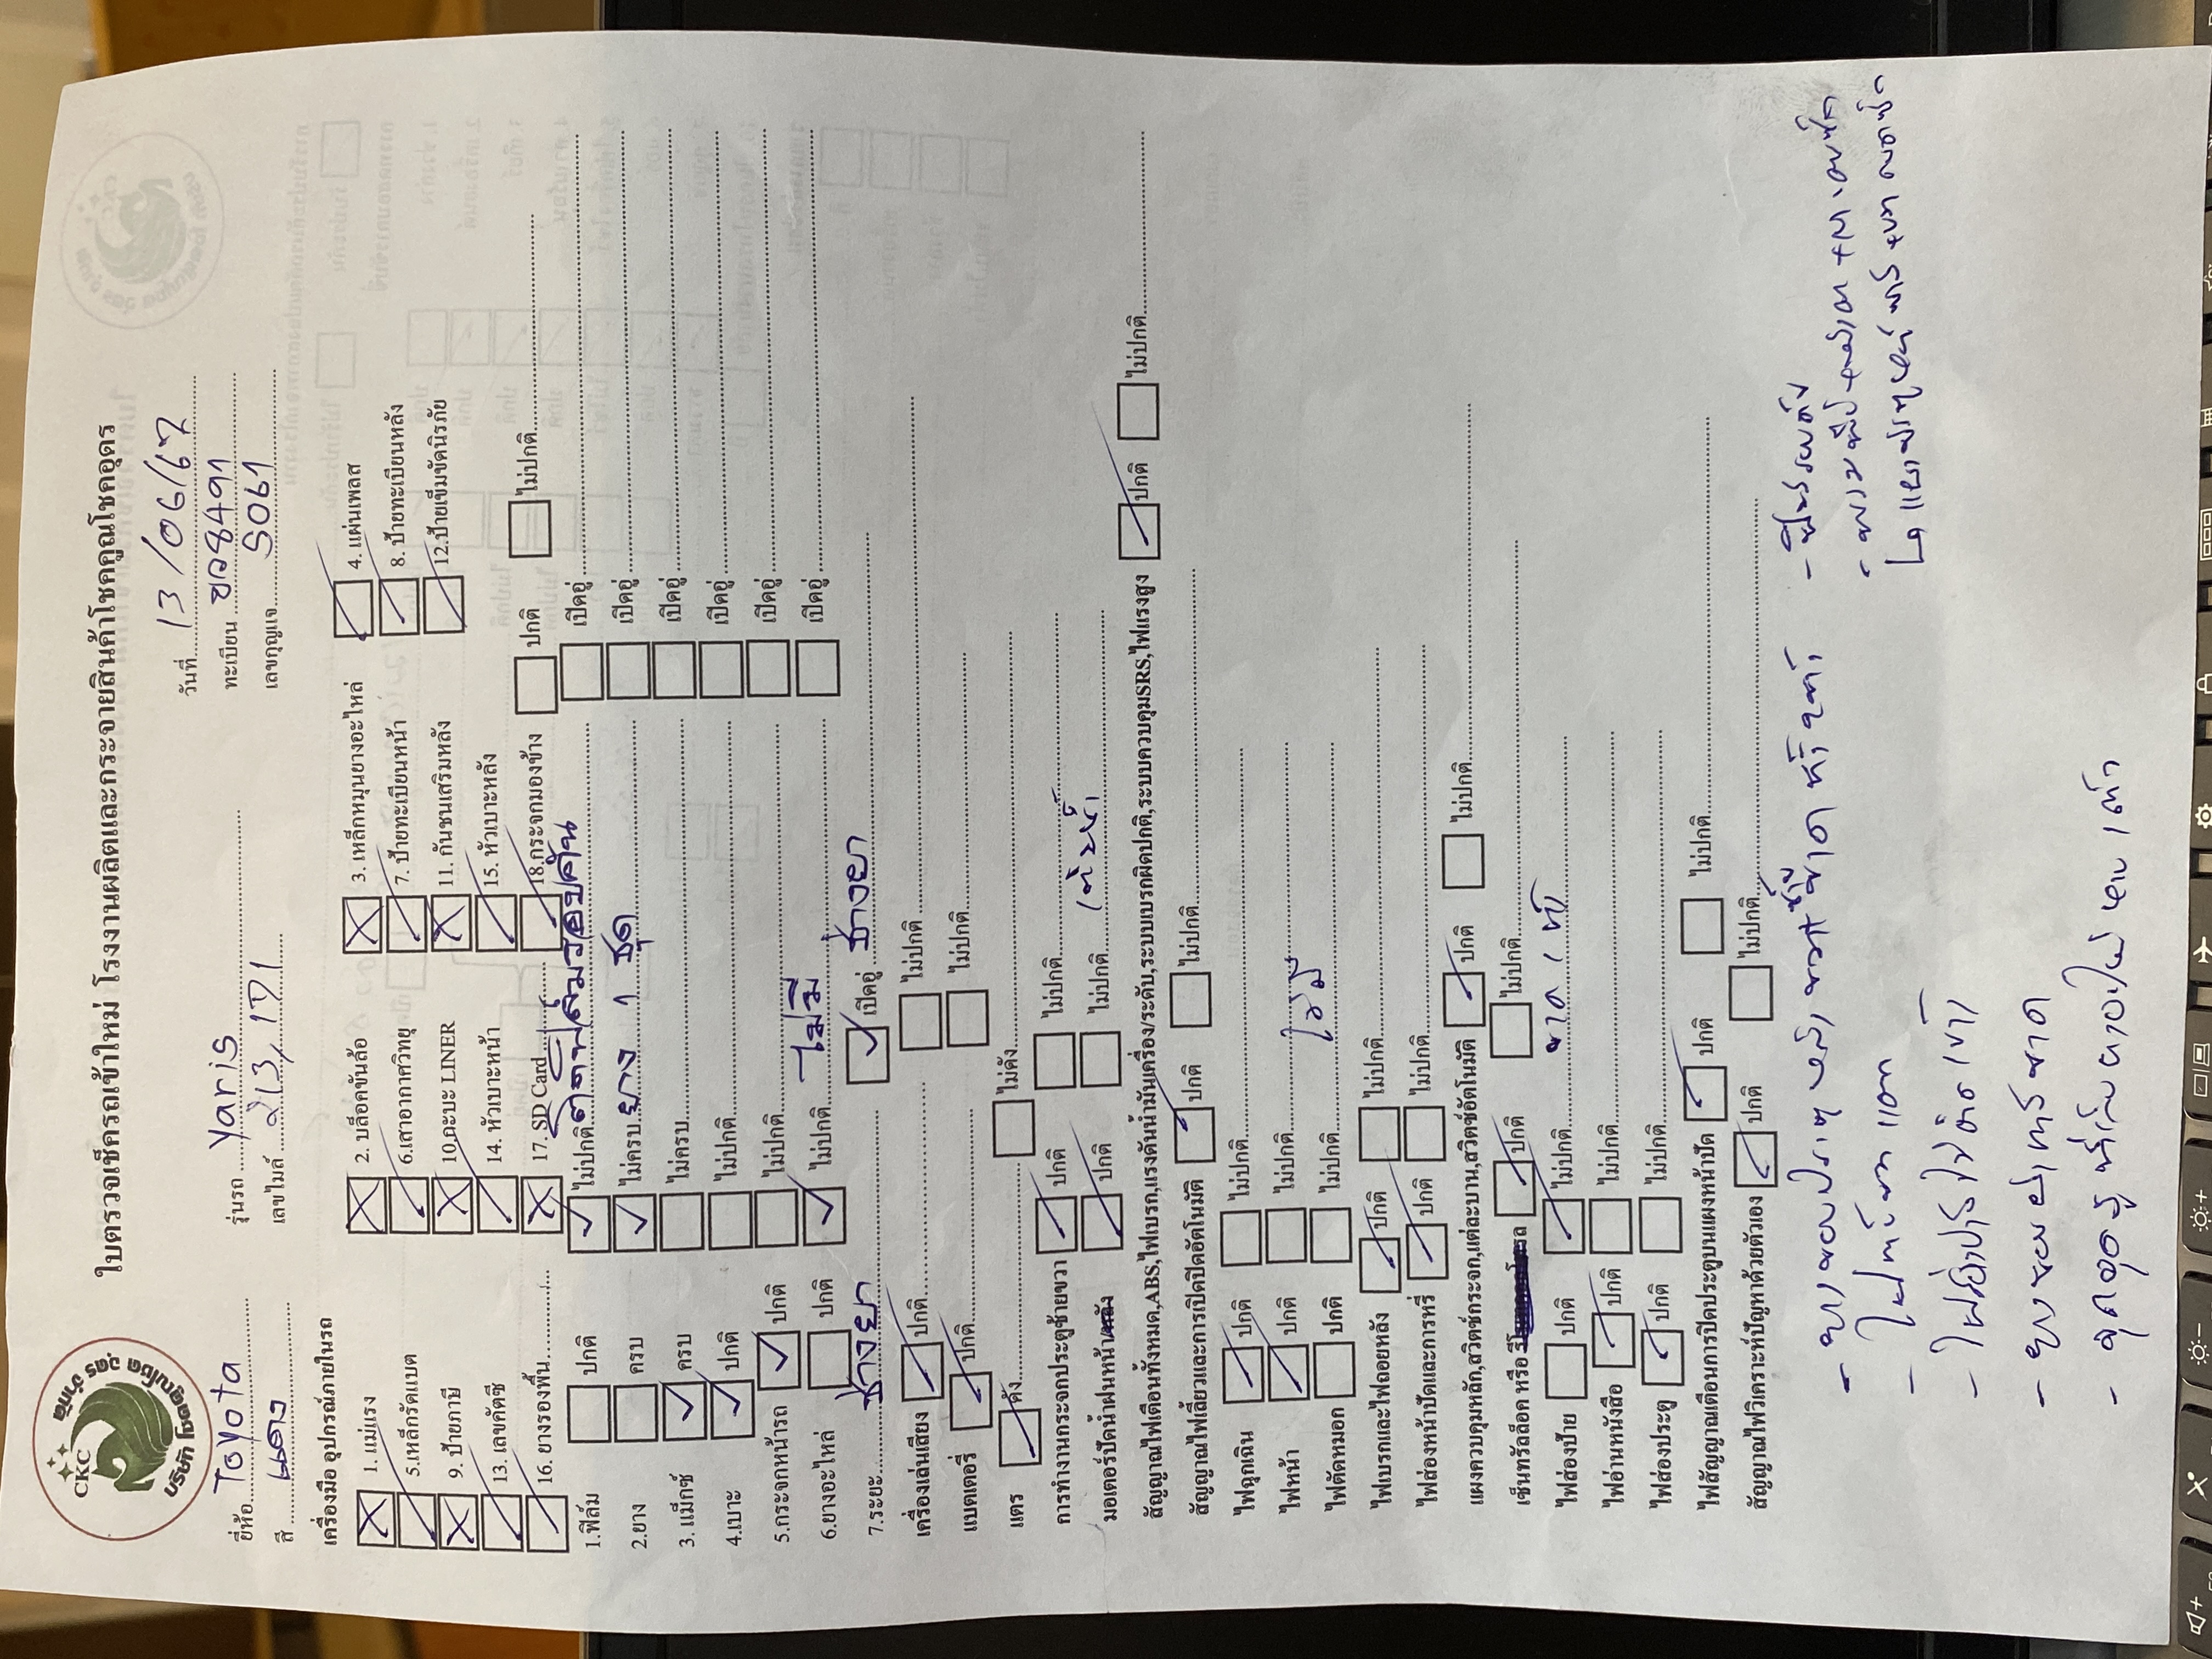 CKC
บริษัท โชคคูณโชค อุดร จำกัด
ใบตรวจเช็ครถเข้าใหม่ โรงงานผลิตและกระจายสินค้าโชคคูณโชคอุดร
วันที่ 13/06/67
ยี่ห้อ Toyota รุ่นรถ Yaris ทะเบียน ขว8491
สี แดง เลขไมล์ 213,171 เลขกุญแจ S061
เครื่องมือ อุปกรณ์ภายในรถ
1. แม่แรง 2. บล็อคขันล้อ 3. เหล็กหมุนยางอะไหล่ 4. แผ่นเพลส
5.เหล็กรัดแบต 6.เสาอากาศวิทยุ 7. ป้ายทะเบียนหน้า 8. ป้ายทะเบียนหลัง
9. ป้ายภาษี 10.กะบะ LINER 11. กันชนเสริมหลัง 12.ป้ายเข็มขัดนิรภัย
13. เลขคัสซี 14. หัวเบาะหน้า 15. หัวเบาะหลัง
16. ยางรองพื้น 17. SD Card 18.กระจกมองข้าง ปกติ ไม่ปกติ
1.ฟิล์ม ปกติ ไม่ปกติ ติดฟิล์มรอบคัน เปิดอยู่
2.ยาง ครบ ไม่ครบ ยาง 1 ชุด เปิดอยู่
3. แม็กซ์ ครบ ไม่ครบ เปิดอยู่
4.เบาะ ปกติ ไม่ปกติ เปิดอยู่
5.กระจกหน้ารถ ปกติ ไม่ปกติ เปิดอยู่
6.ยางอะไหล่ ปกติ ไม่ปกติ ไม่มี เปิดอยู่
7.ระยะ ช้างยา เปิดอยู่ ช้างยา
เครื่องเล่นเสียง ปกติ ไม่ปกติ
แบตเตอรี่ ปกติ ไม่ปกติ
แตร ดัง ไม่ดัง
การทำงานกระจกประตูซ้ายขวา ปกติ ไม่ปกติ
มอเตอร์ปัดน้ำฝนหน้า ปกติ ไม่ปกติ
สัญญาณไฟเตือนทั้งหมด,ABS,ไฟเบรก,แรงดันน้ำมันเครื่อง/ระดับ,ระบบเบรกผิดปกติ,ระบบควบคุมSRS,ไฟแรงสูง ปกติ ไม่ปกติ
สัญญาณไฟเลี้ยวและการเปิดปิดอัตโนมัติ ปกติ ไม่ปกติ
ไฟฉุกเฉิน ปกติ ไม่ปกติ
ไฟหน้า ปกติ ไม่ปกติ
ไฟตัดหมอก ปกติ ไม่ปกติ ไม่มี
ไฟเบรกและไฟถอยหลัง ปกติ ไม่ปกติ
ไฟส่องหน้าปัดและการหรี่ ปกติ ไม่ปกติ
แผงควบคุมหลัก,สวิตช์กระจก,แต่ละบาน,สวิตช์อัตโนมัติ ปกติ ไม่ปกติ
เซ็นทรัลล็อค หรือ ปกติ ไม่ปกติ
ไฟส่องป้าย ปกติ ไม่ปกติ
ไฟอ่านหนังสือ ปกติ ไม่ปกติ
ไฟส่องประตู ปกติ ไม่ปกติ
ไฟสัญญาณเตือนการปิดประตูบนแผงหน้าปัด ปกติ ไม่ปกติ
สัญญาณไฟวิเคราะห์ปัญหาด้วยตัวเอง ปกติ ไม่ปกติ